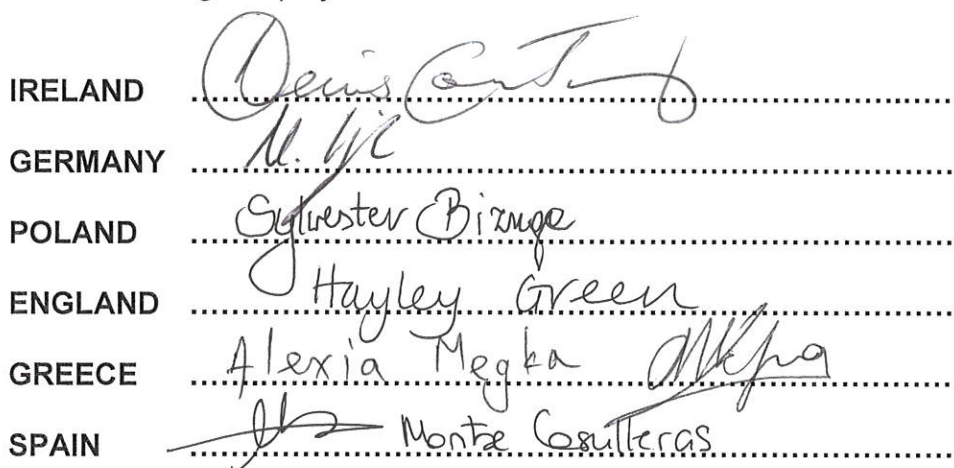 IRELAND Denis
GERMANY M.
POLAND Sylwester Bizuga
ENGLAND Hayley Green
GREECE Alexia Megka
SPAIN Montse